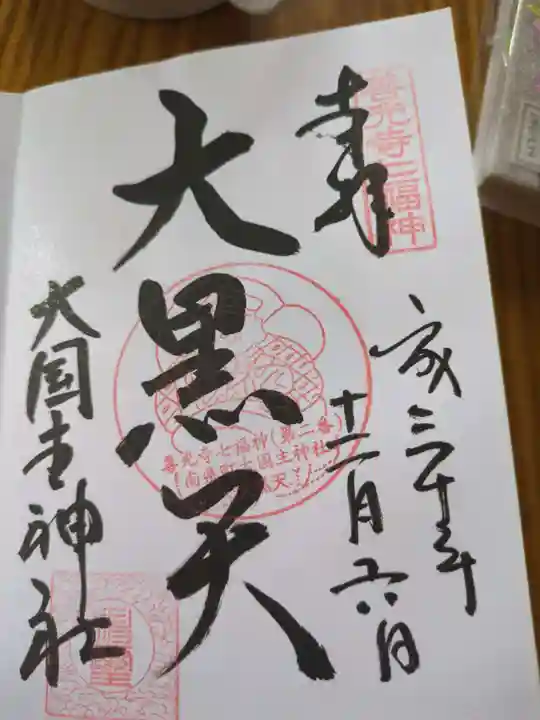 奉拝
善光寺七福神
成三十年
十二月六日
大黒天
善光寺七福神(第二番)
南県町大国主神社
大国主神社